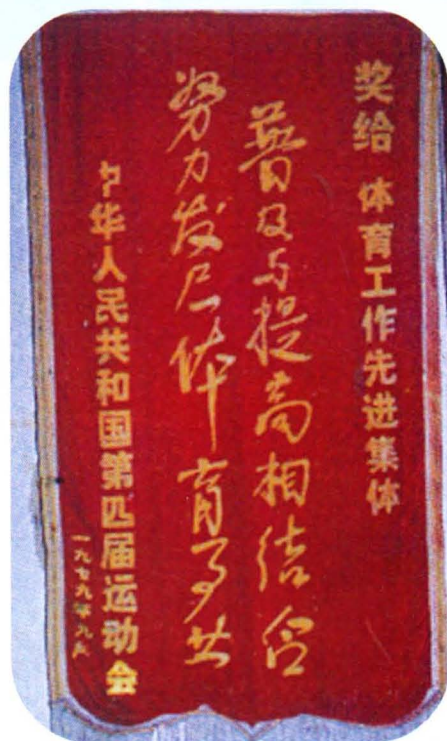 奖给 体育工作先进集体
普及与提高相结合
努力发展体育事业
中华人民共和国第四届运动会
一九七九年九月